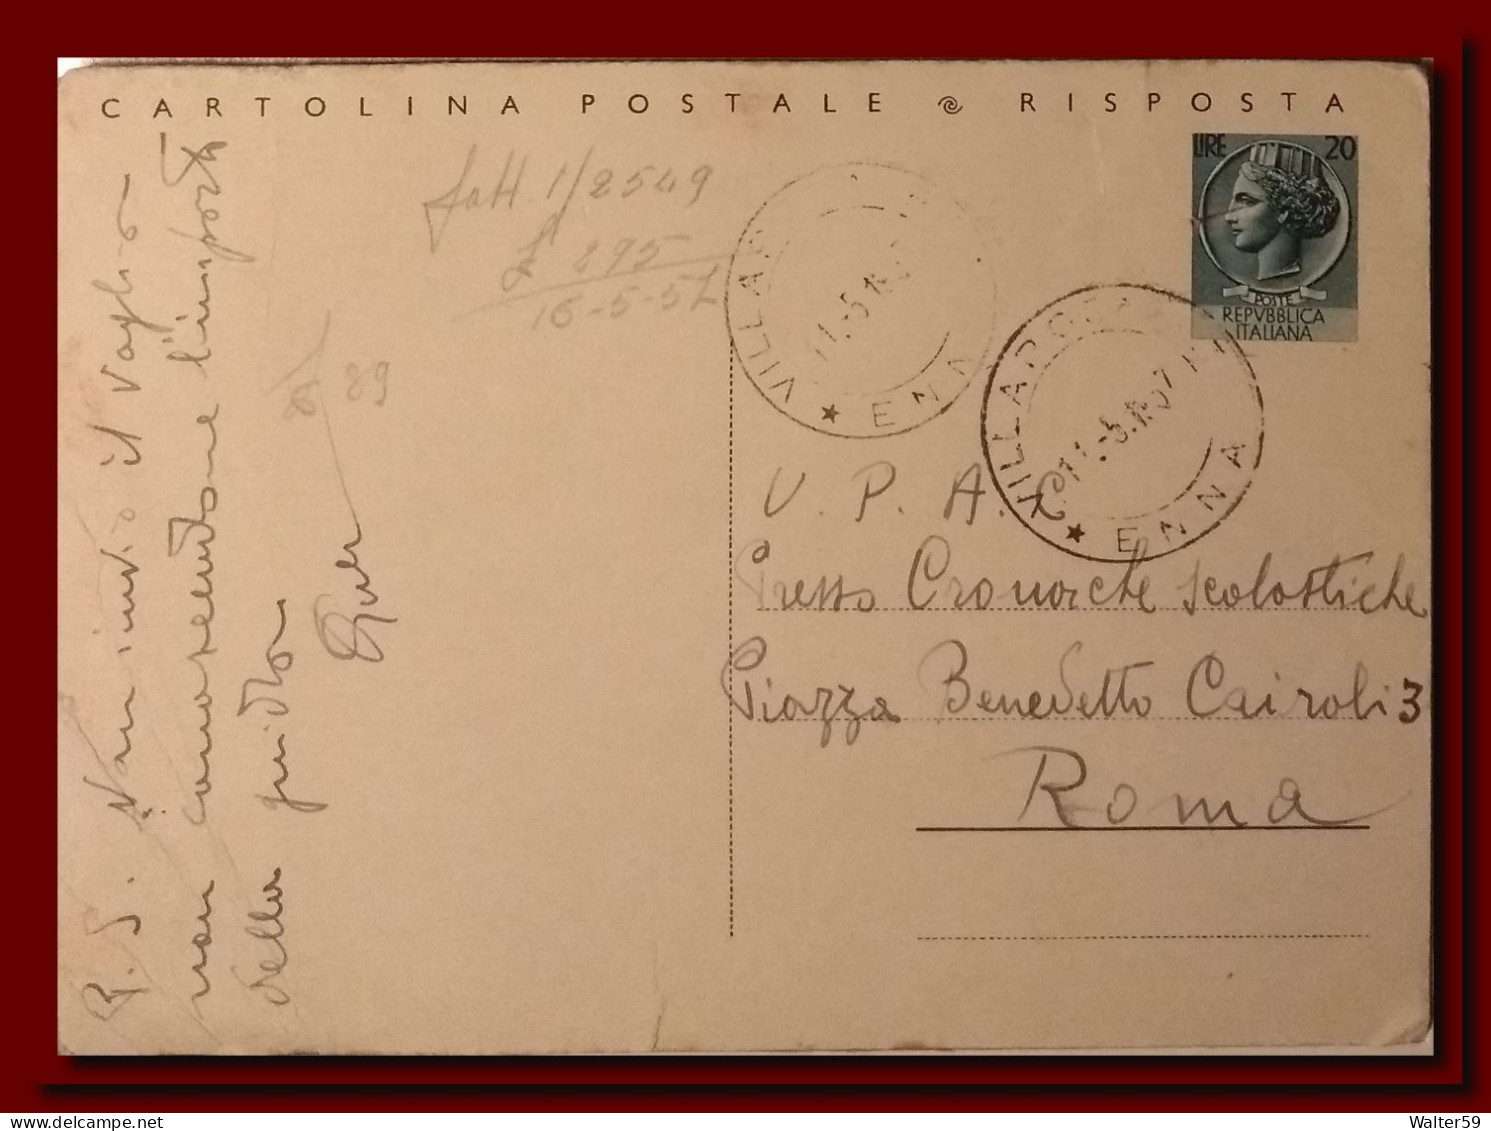 CARTOLINA POSTALE RISPOSTA
LIRE 20
POSTE
REPVBBLICA
ITALIANA
fatt 1/2549
£ 295
16-5-57
89
VILLAR
11.-5.
ENN
VILLAROSA
11.-5. 57
ENNA
U. P. A.
Presso Cronache scolastiche
Piazza Benedetto Cairoli 3
Roma
P. S. Non invio il vaglia
non conoscendone l'importo
della
delcampe.net
Walter59